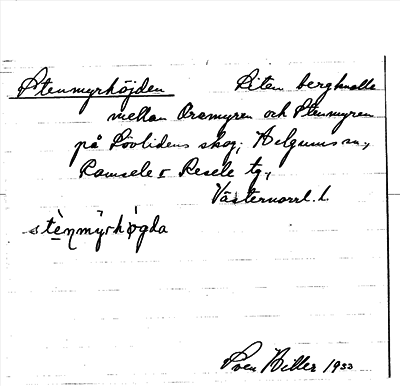 Stenmyrhöjden Liten bergknalle
mellan Oremyren och Stenmyren
på Lövlidens skog, Helgums sn,
Ramsele o Resele tg,
Västernorrl. l.
stènmyrhøgda
Sven Hiller 1933